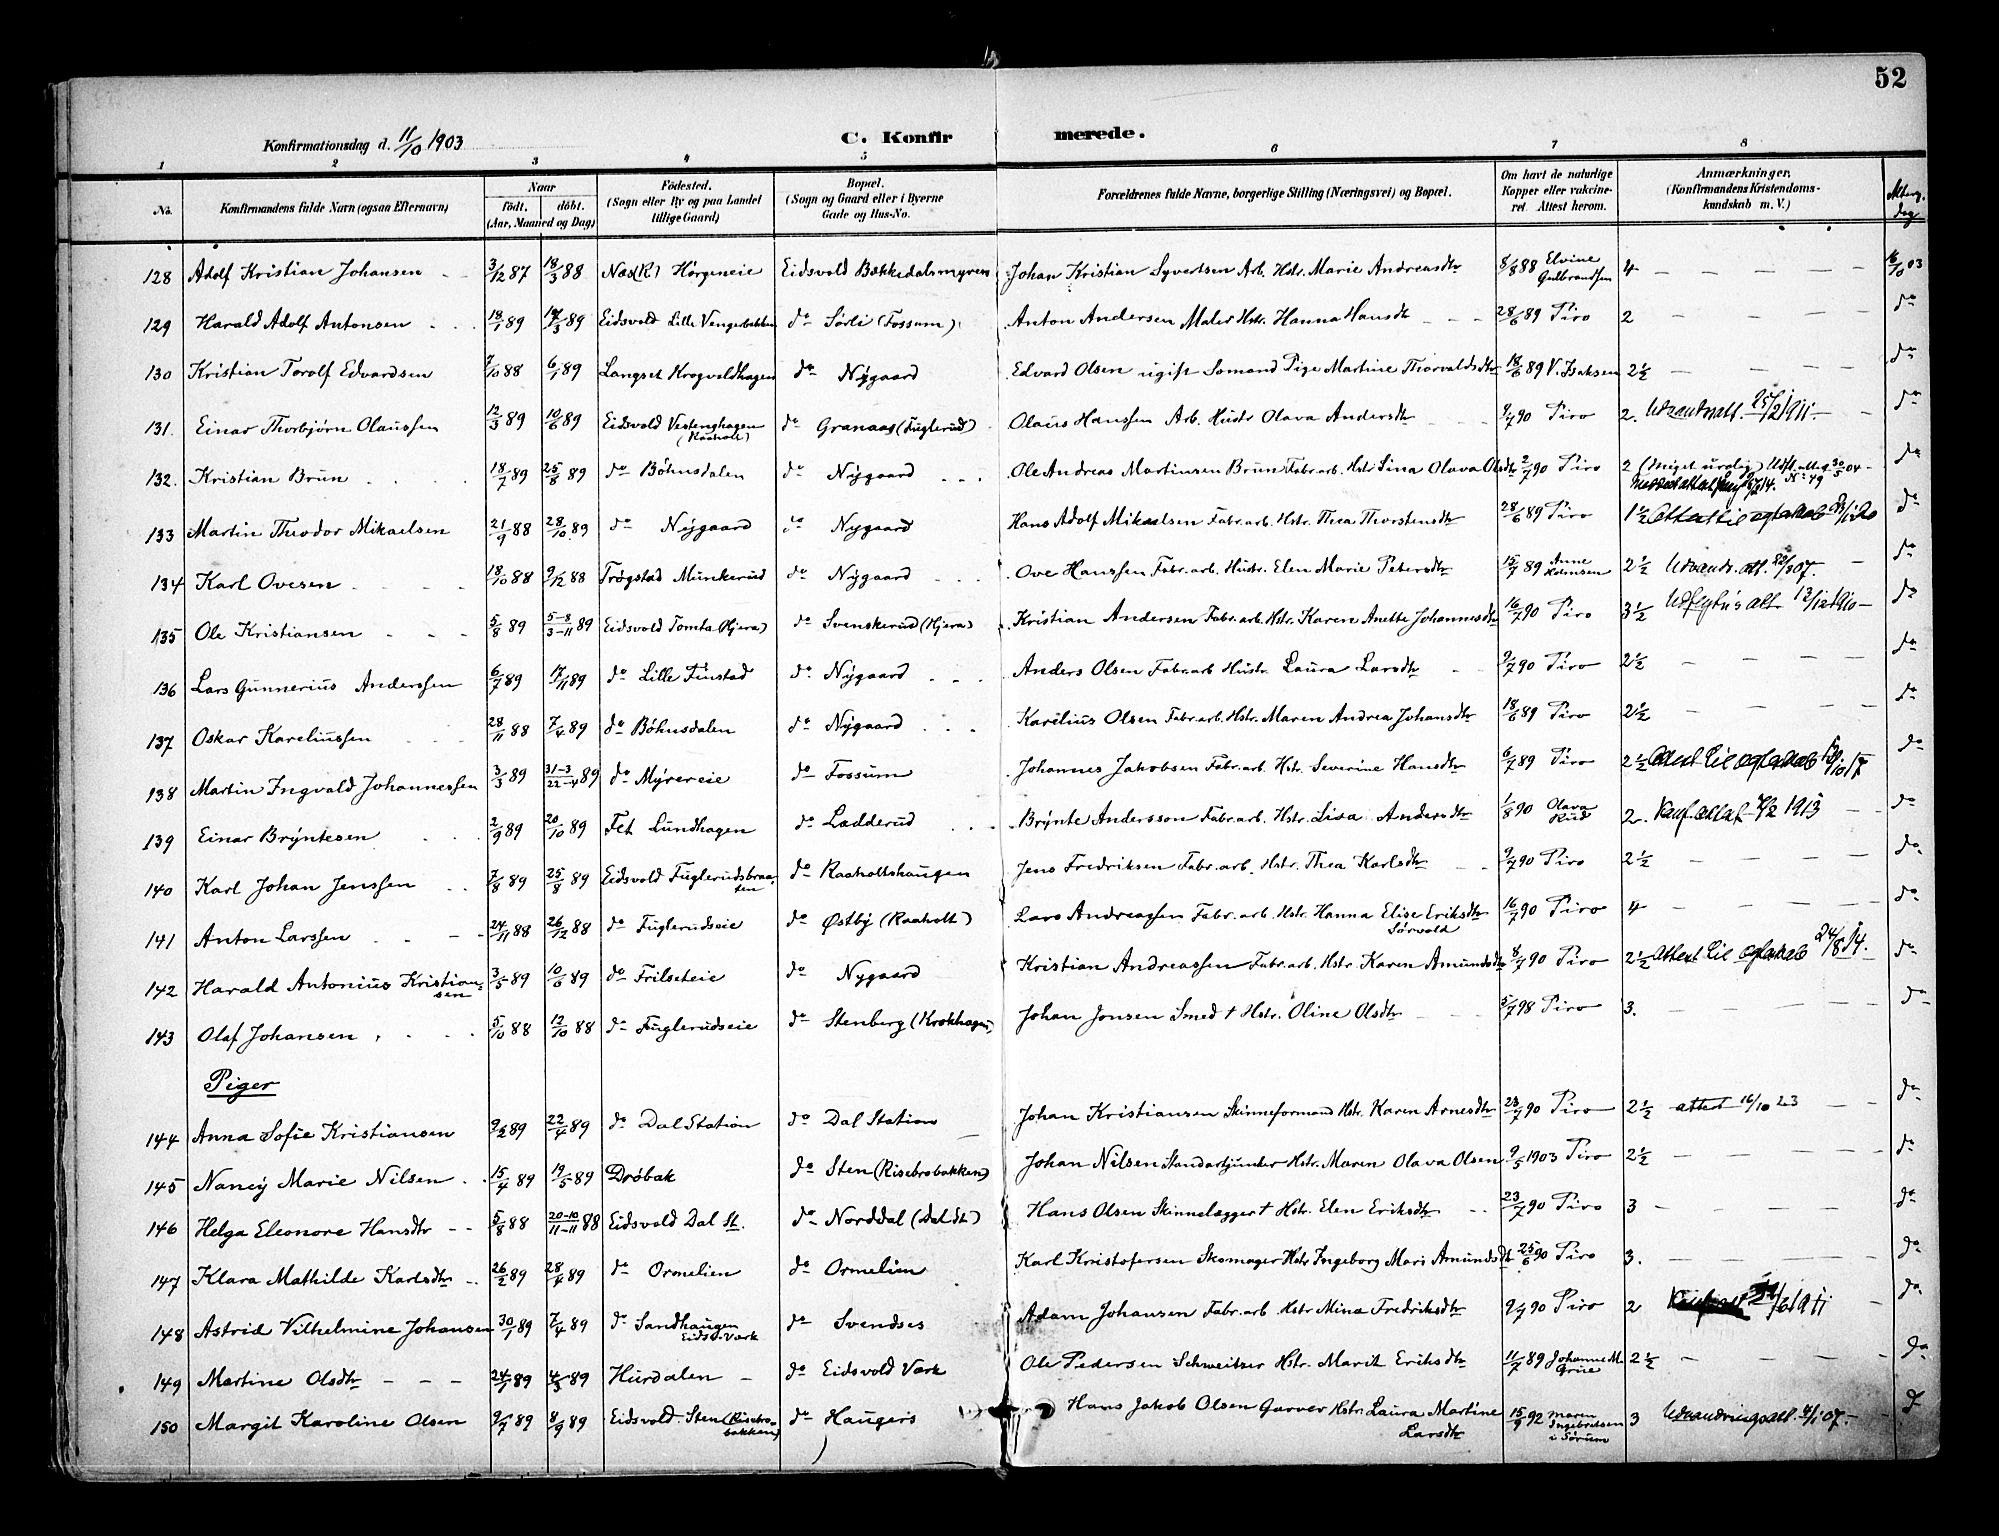 52
Konfirmationsdag d. 11/10 1903 C. Konfirmerede.
1 2 3 4 5 6 7 8
No. Konfirmandens fulde Navn (ogsaa Efternavn) Naar født. døbt. (Aar, Maaned og Dag) Fødested. (Sogn eller By og paa Landet tillige Gaard) Bopæl. (Sogn og Gaard eller i Byerne Gade og Hus-No. Forældrenes fulde Navne, borgerlige Stilling (Næringsvei) og Bopæl. Om havt de naturlige Kopper eller vakcineret. Attest herom. Anmærkninger. (Konfirmandens Kristendomskundskab m. V.)
128 Adolf Kristian Johansen 3/12 87 18/3 88 Næs (R) Hörgeneie Eidsvold Bækkedalsmyren Johan Kristian Syvertsen Arb. Hstr. Marie Andreasdtr 8/8 88 Elvine Gulbrandsen 4 16/10 03
129 Harald Adolf Antonsen 18/1 89 17/3 89 Eidsvold Lille Vengerbakken do Sörli (Fossum) Anton Andersen Maler Hstr. Hanna Hansdtr 28/6 89 Piro 2 do
130 Kristian Torolf Edvardsen 7/10 88 6/1 89 Langset Krogvoldhagen do Nygaard Edvard Olsen ugift Sømand Pige Martine Thorvaldsdtr 18/6 89 V. Isaksen 2½ do
131. Einar Thorbjörn Olaussen 12/3 89 10/6 89 Eidsvold Vestenghagen (Raaholt) do Granaas (Fuglerud) Olaus Hanssen Arb. Hustr. Olava Andersdtr 9/7 90 Piro 2. Udvandratt. 25/2 1911 do
132. Kristian Brun 18/7 89 25/8 89 do Böhnsdalen do Nygaard Ole Andreas Martinsen Brun Fabr.arb. Hstr. Lina Olava Olsdtr 2/7 90 Piro 2 (Meget urolig) Udfl. attest 30/5 04 No 49 do
133 Martin Theodor Mikaelsen 21/9 88 28/10 89 do Nygaard do Nygaard Hans Adolf Mikaelsen Fabr.arb. Hstr. Thea Thorstensdtr 28/6 89 Piro 1½ Attest til egteskab do
134 Karl Ovesen 18/10 88 9/12 88 Trögstad Munkerud do Nygaard Ove Hanssen Fabr.arb. Hustr. Elen Marie Petersdtr 15/7 89 Anne Holmsen 2½ Udvandr. att. 22/3 07. do
135 Ole Kristiansen 5/8 89 5-8/3-11 89 Eidsvold Tomta (Hjera) do Svenskerud (Hjera) Kristian Andersen Fabr.arb. Hstr. Karen Anette Johannesdtr 16/7 90 Piro 3½ Udflytn's att. 13/12 1910 do
136 Lars Gunnerius Anderssen 6/7 89 17/11 89 do Lille Finstad do Nygaard Anders Olsen Fabr.arb Hustr. Laura Larsdtr 9/7 90 Piro 2½ do
137 Oskar Kareliussen 28/11 88 7/4 89 do Böhnsdalen do Nygaard Karelius Olsen Fabr.arb. Hstr. Maren Andrea Johansdtr 18/6 89 Piro 2½ do
138 Martin Ingvald Johannessen 3/3 89 31-3/22-4 89 do Myrereie do Fossum Johannes Jakobsen Fabr.arb. Hstr. Severine Hansdtr 6/7 89 Piro 2½ Attest til egteskab do
139 Einar Bryntesen 2/9 89 20/10 89 Fet Lundhagen do Ladderud Brynte Andersson Fabr.arb. Hstr. Lisa Andersdtr 1/8 90 Olava Rud 2. Konf. attest 1913 do
140 Karl Johan Jenssen 7/8 89 25/8 89 Eidsvold Fuglerudsbraaten do Raaholtshaugen Jens Fredriksen Fabr.arb. Hstr. Thea Karlsdtr 9/7 90 Piro 2½ do
141 Anton Larssen 24/11 88 26/12 88 do Fuglerudseie do Østby (Raaholt) Lars Andreassen Fabr.arb. Hstr. Hanna Elise Eriksdtr Sørvold 16/7 90 Piro 4 do
142 Harald Antonius Kristiansen 3/5 89 10/6 89 do Frilseteie do Nygaard Kristian Andreassen Fabr.arb. Hstr. Karen Amundsdtr 8/7 90 Piro 2½ Attest til egteskab 24/8 14. do
143 Olaf Johansen 5/10 88 12/10 88 do Fuglerudseie do Stenberg (Krokhagen) Johan Jonsen Smed † Hstr. Oline Olsdtr 5/7 98 Piro 3. do
Piger
144 Anna Sofie Kristiansen 9/2 89 22/4 89 do Dal Station do Dal Station Johan Kristiansen Skinneformand Hstr. Karen Arnesdtr 23/7 90 Piro 2½ attest 16/10 23 do
145 Nancy Marie Nilsen 15/4 89 19/5 89 Drøbak do Sten (Risebrobakken) Johan Nilsen Standartjunker Hstr. Maren Olava Olsen 9/5 1903 Piro 2½ do
146 Helga Eleonore Hansdtr 5/8 88 20-10/11-11 88 Eidsvold Dal St. do Norddal (Dal St) Hans Olsen Skinnelægger † Hstr. Elen Eriksdtr 23/7 90 Piro 3 do
147 Klara Mathilde Karlsdtr 26/2 89 28/4 89 do Ormelien do Ormelien Karl Kristofersen Skomager Hstr. Ingeborg Mari Amundsdtr 25/6 90 Piro 3. do
148 Astrid Vilhelmine Johansen 30/1 89 7/4 89 do Sandhaugen Eidsv. Værk do Svendses Adam Johansen Fabr.arb. Hstr. Mina Fredriksdtr 9/7 90 Piro 2 1911 do
149 Martine Olsdtr 24/1 89 4/3 89 Hurdalen do Eidsvold Værk Ole Pedersen Schweitzer Hstr. Marit Eriksdtr 11/7 89 Johanne M. Grüe 2½ do
150 Margit Karoline Olsen 9/7 89 8/9 89 Eidsvold Sten (Risebrobakken) do Haugers Hans Jakob Olsen Garver Hstr. Laura Martine Larsdtr 15/9 92 Maren Ingebretsen i Sørum 3 Udvandringsatt. 4/1 07. do